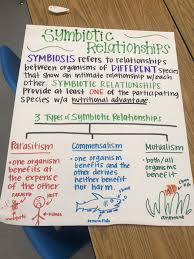 Symbiotic
Relationships
SYMBIOSIS refers to relationships
between organisms of DIFFERENT species
that show an intimate relationship w/each
other. SYMBIOTIC RELATIONSHIPS
Provide at least ONE of the participating
species w/a nutritional advantage.
3 Types of Symbiotic Relationships
Parasitism
-one organism
benefits at the
expense of the
other
HOST
Commensalism
-one organism
benefits and the
other derives
neither benefit
nor harm.
Mutualism
-both/all
organisms
benefit